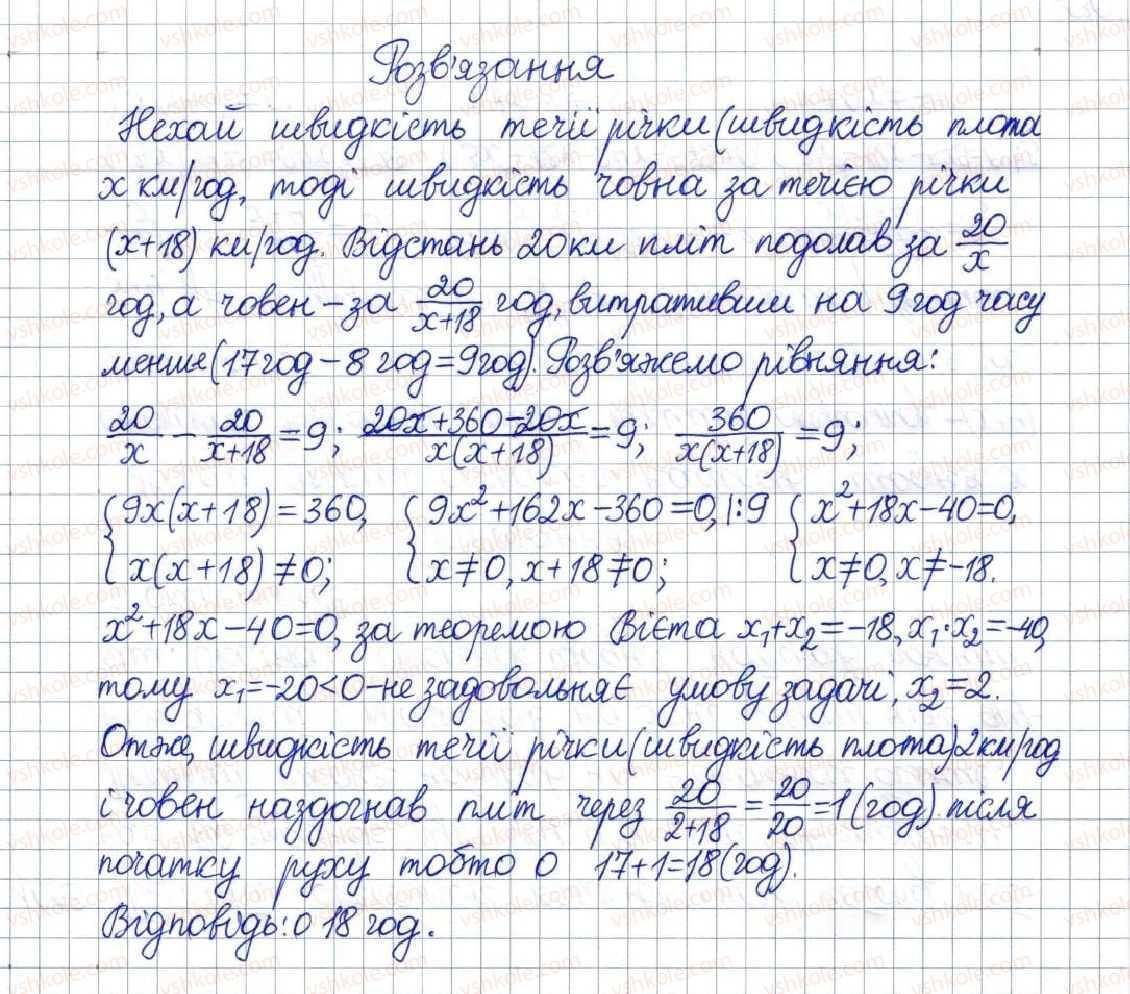 Розв'язання
Нехай швидкість течії річки (швидкість плота
x км/год, тоді швидкість човна за течією річки
(x+18) км/год. Відстань 20 км пліт подолав за 20/x
год, а човен – за 20/(x+18) год, витративши на 9 год часу
менше (17 год – 8 год = 9 год). Розв'яжемо рівняння:
20/x – 20/(x+18) = 9; (20x+360–20x)/(x(x+18)) = 9; 360/(x(x+18)) = 9;
{9x(x+18) = 360, {9x²+162x–360=0, |:9 {x²+18x–40=0,
x(x+18) ≠ 0; x≠0, x+18≠0; x≠0, x≠–18.
x²+18x–40=0, за теоремою Вієта x₁+x₂=–18, x₁·x₂=–40,
тому x₁=–20<0 – не задовольняє умову задачі, x₂=2.
Отже, швидкість течії річки (швидкість плота) 2 км/год
і човен наздогнав пліт через 20/(2+18) = 20/20 = 1 (год) після
початку руху тобто о 17+1=18 (год).
Відповідь: о 18 год.